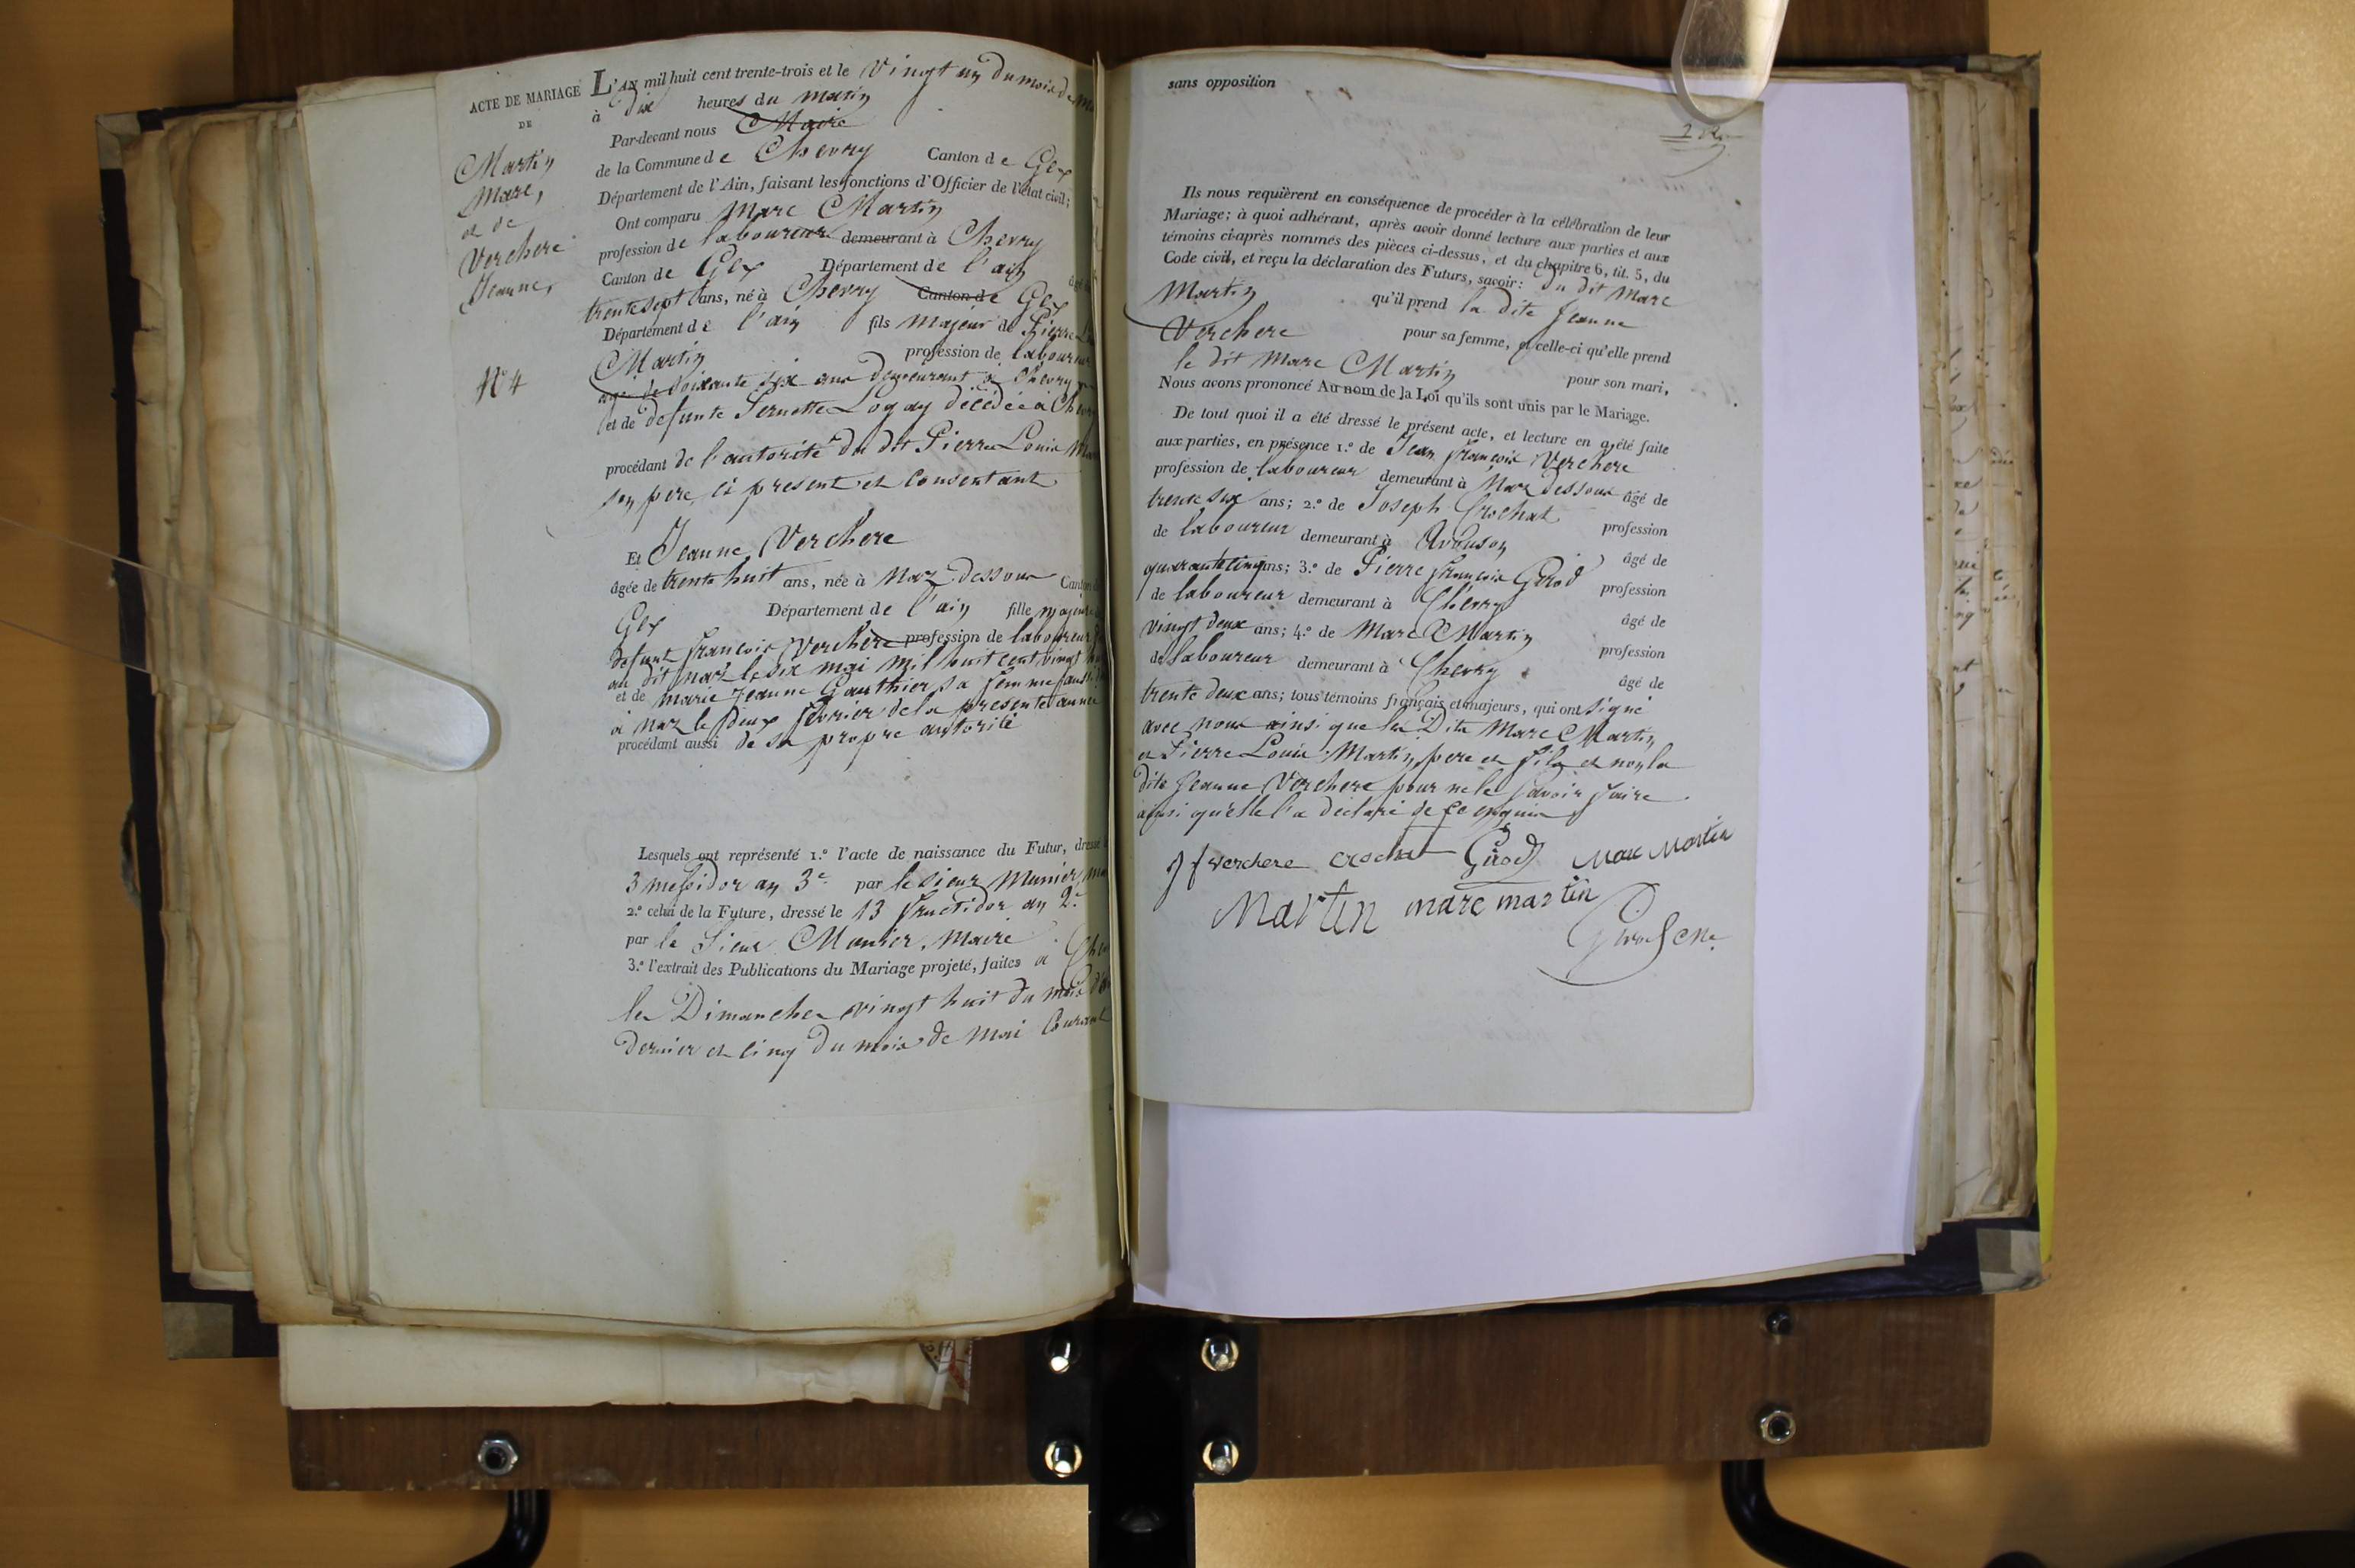 ACTE DE MARIAGE
DE
Martin
Marc,
et de
Verchere
Jeanne,
N° 4
L'AN mil huit cent trente-trois et le vingt un du mois de
à dix heures du matin
Par-devant nous Maire
de la Commune de Chevry Canton de Gex
Département de l'Ain, faisant les fonctions d'Officier de l'état civil;
Ont comparu Marc Martin
profession de laboureur demeurant à Chevry
Canton de Gex Département de l'ain âgé de
trente sept ans, né à Chevry Canton de Gex
Département de l'ain fils majeur de Pierre
Martin profession de laboureur
agé de soixante six ans demeurant à Chevry
et de defunte Pernette Logay décédée à
procédant de l'autorité du dit Pierre Louis
son pere, ci present et Consentant
Et Jeanne Verchere
âgée de trente huit ans, née à Naz-dessous Canton
Gex Département de l'ain fille majeure
defunt françois Verchere profession de laboureur
au dit Naz le six mai mil huit cent vingt
et de marie Jeanne Gauthier sa femme aussi
à Naz le deux fevrier de la presente année
procédant aussi de sa propre autorité
Lesquels ont représenté 1.° l'acte de naissance du Futur, dressé
3 messidor an 3e par le sieur Munier
2.° celui de la Future, dressé le 13 fructidor an 2e
par le Sieur Munier, Maire
3.° l'extrait des Publications du Mariage projeté, faites a
les Dimanches vingt huit du mois
dernier et cinq du mois de Mai Courant
sans opposition
Ils nous requièrent en conséquence de procéder à la célébration de leur
Mariage; à quoi adhérant, après avoir donné lecture aux parties et aux
témoins ci-après nommés des pièces ci-dessus, et du chapitre 6, tit. 5, du
Code civil, et reçu la déclaration des Futurs, savoir: du dit Marc
Martin qu'il prend la dite Jeanne
Verchere pour sa femme, et celle-ci qu'elle prend
le dit Marc Martin pour son mari,
Nous avons prononcé Au nom de la Loi qu'ils sont unis par le Mariage.
De tout quoi il a été dressé le présent acte, et lecture en a été faite
aux parties, en présence 1.° de Jean françois Verchere
profession de laboureur demeurant à Naz dessous âgé de
trente six ans; 2.° de Joseph Crochat profession
de laboureur demeurant à âgé de
quarante cinq ans; 3.° de Pierre françois Girod profession
de laboureur demeurant à Chevry âgé de
vingt deux ans; 4.° de Marc Martin profession
de laboureur demeurant à Chevry âgé de
trente deux ans; tous témoins français et majeurs, qui ont signé
avec nous ainsi que les Dits Marc Martin
et Pierre Louis Martin, pere et fils et non la
dite Jeanne Verchere pour ne le savoir faire
ainsi qu'elle l'a déclaré de ce enquise
J f verchere crochat Girod Marc Martin
Martin marc martin